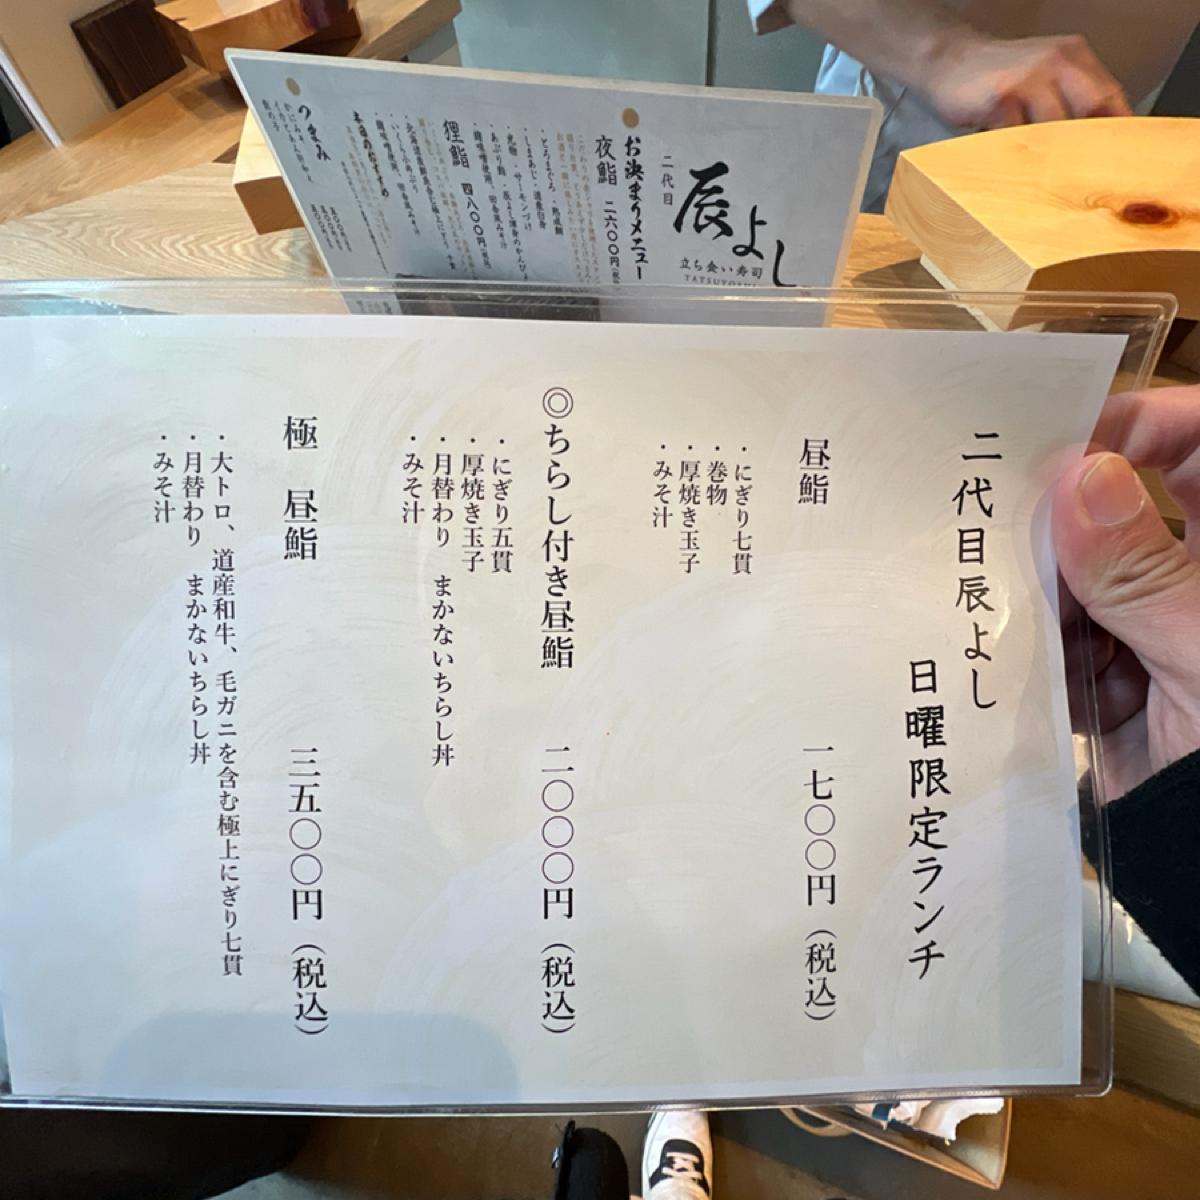 二代目辰よし
日曜限定ランチ
昼鮨 一七〇〇円（税込）
・にぎり七貫
・巻物
・厚焼き玉子
・みそ汁
◎ちらし付き昼鮨 二〇〇〇円（税込）
・にぎり五貫
・厚焼き玉子
・月替わり まかないちらし丼
・みそ汁
極 昼鮨 三五〇〇円（税込）
・大トロ、道産和牛、毛ガニを含む極上にぎり七貫
・月替わり まかないちらし丼
・みそ汁
二代目
辰よし
立ち食い寿司
お決まりメニュー
夜鮨 二六〇〇円
・とろまぐろ
・しまあじ・道産白身
・光物・サーモンづけ
狸鮨 四八〇〇円
本日のおすすめ
つまみ